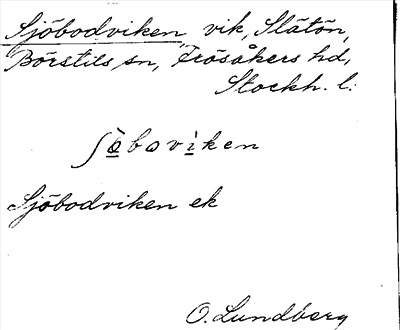 Sjöbodviken vik, Slätön,
Börstils sn, Frösåkers hd,
Stockh. l.
ʃö̀bovìken
Sjöbodviken ek
O. Lundberg